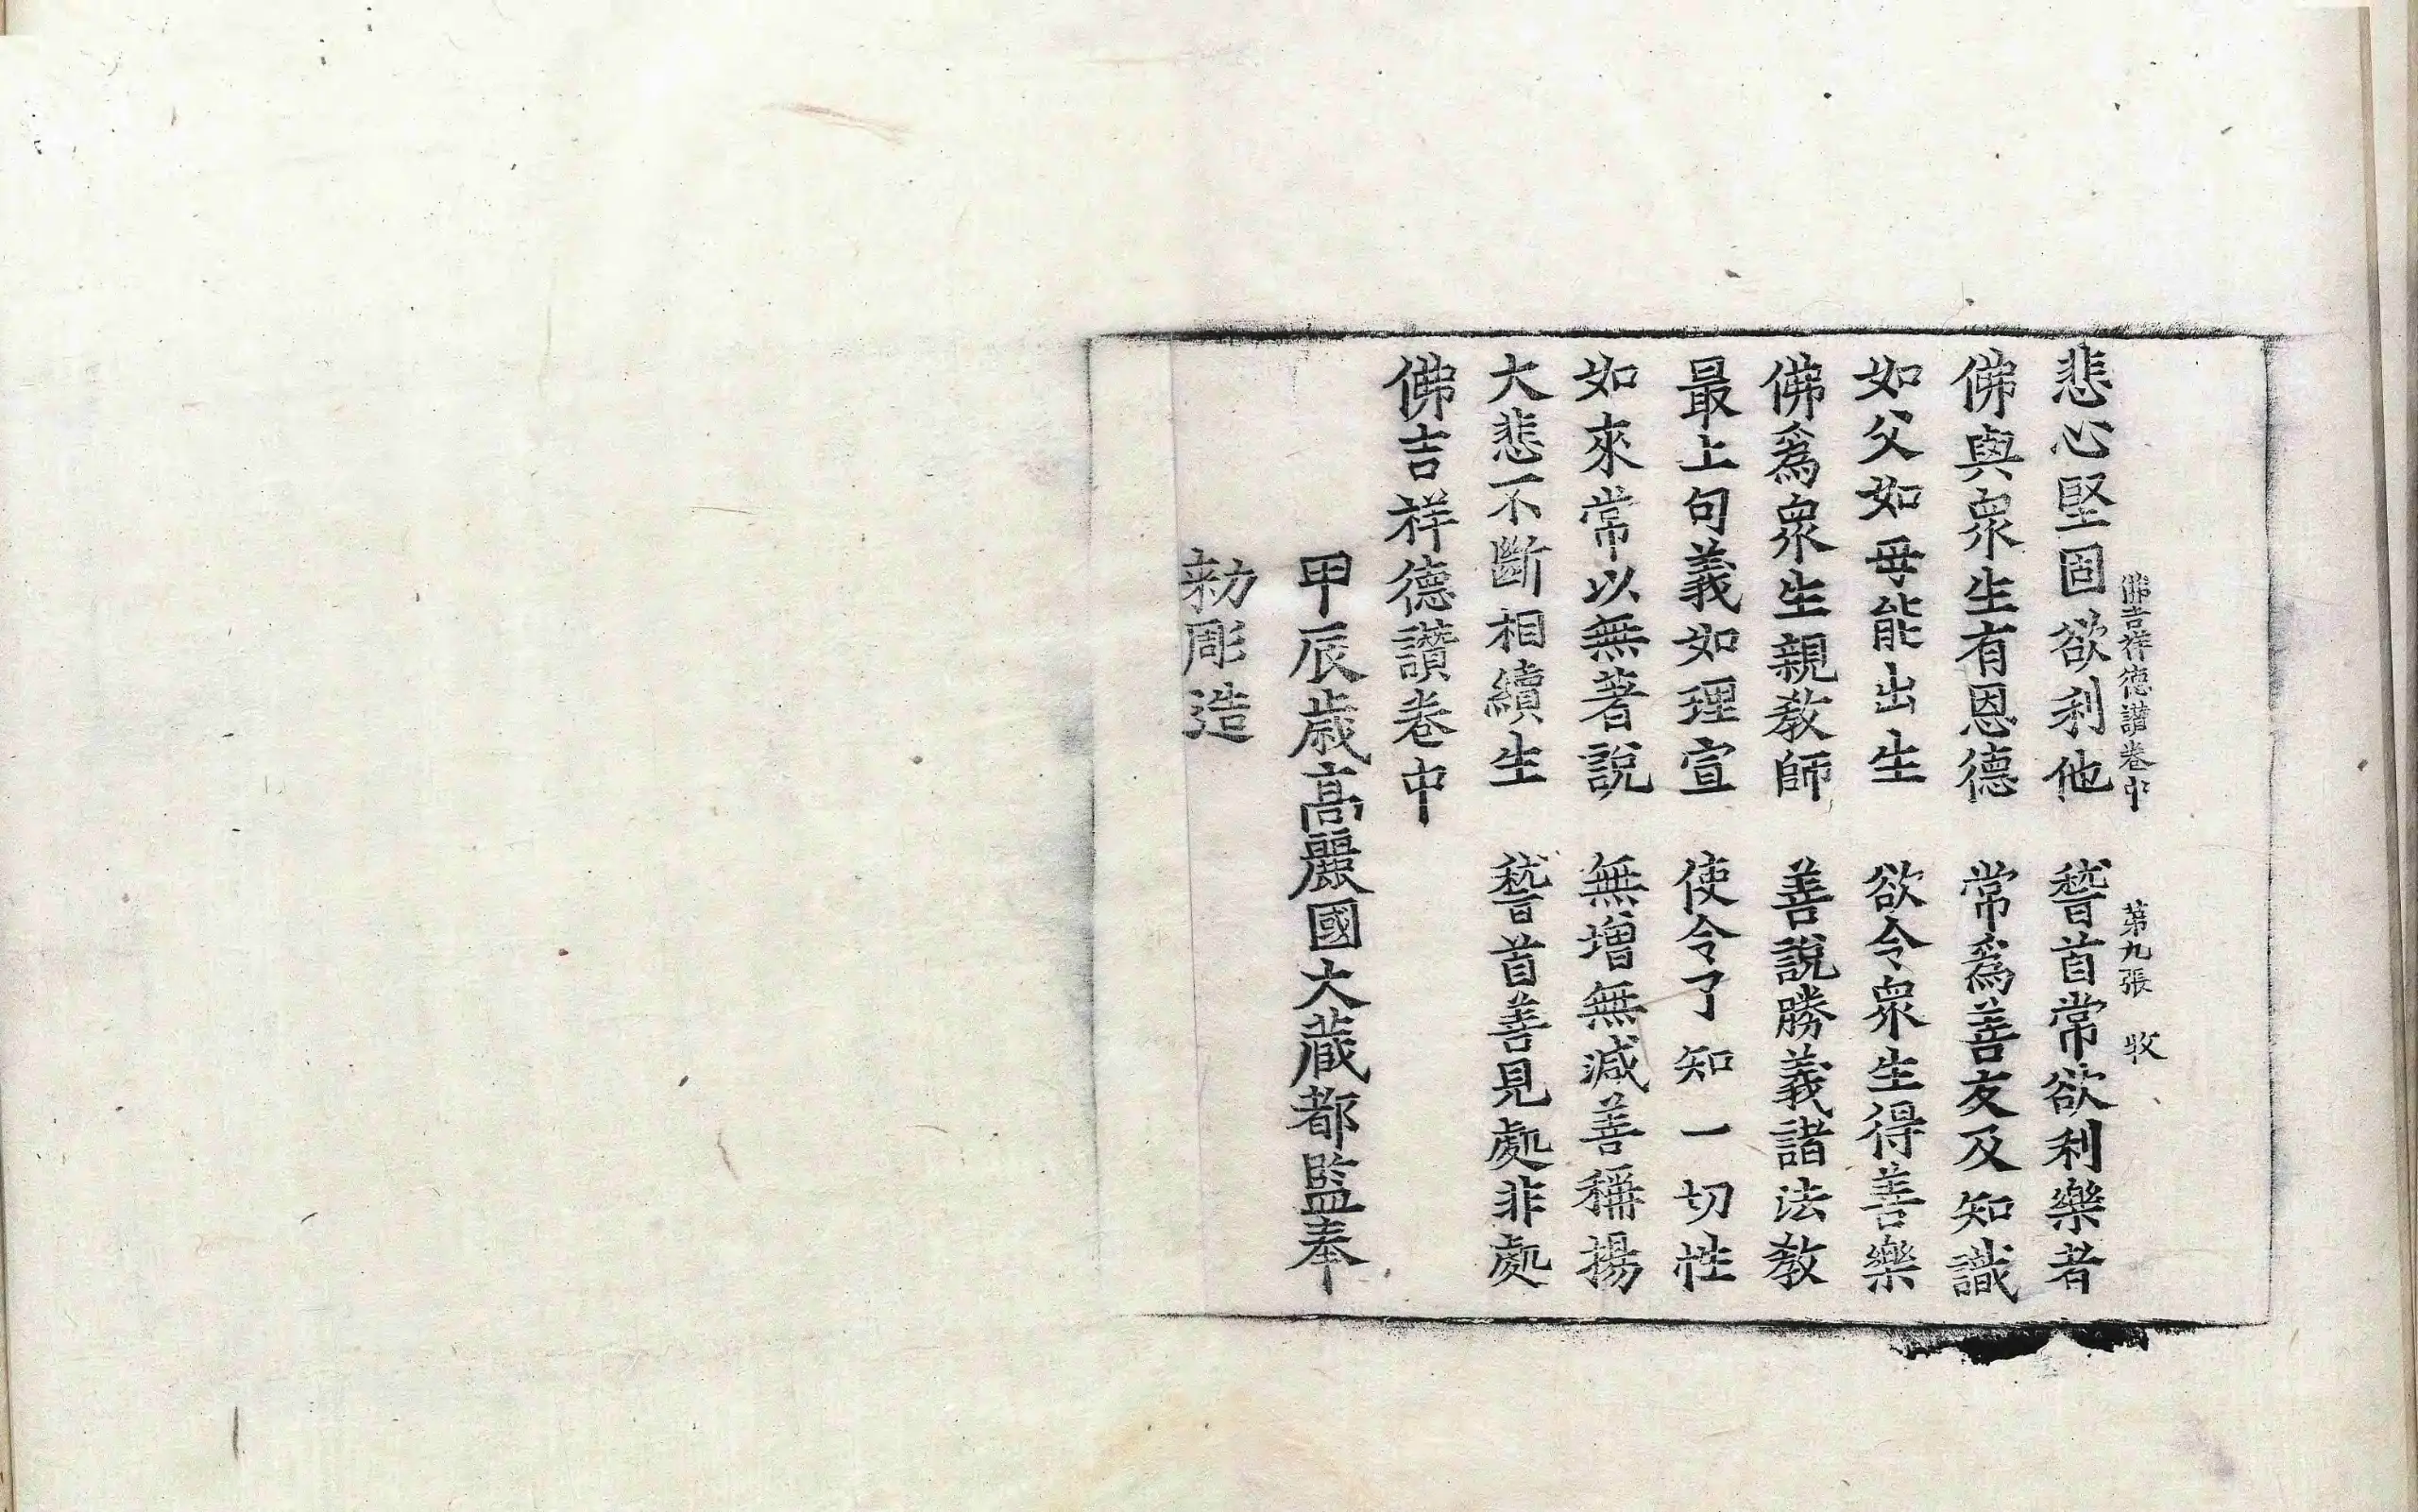 佛吉祥德讃卷中 第九張 牧
悲心堅固欲利他 稽首常欲利樂者
佛與衆生有恩德 常爲善友及知識
如父如母能出生 欲令衆生得善樂
佛爲衆生親教師 善說勝義諸法教
最上句義如理宣 使令了知一切性
如來常以無著說 無增無減善稱揚
大悲不斷相續生 稽首善見處非處
佛吉祥德讃卷中
甲辰歲高麗國大藏都監奉
勑彫造